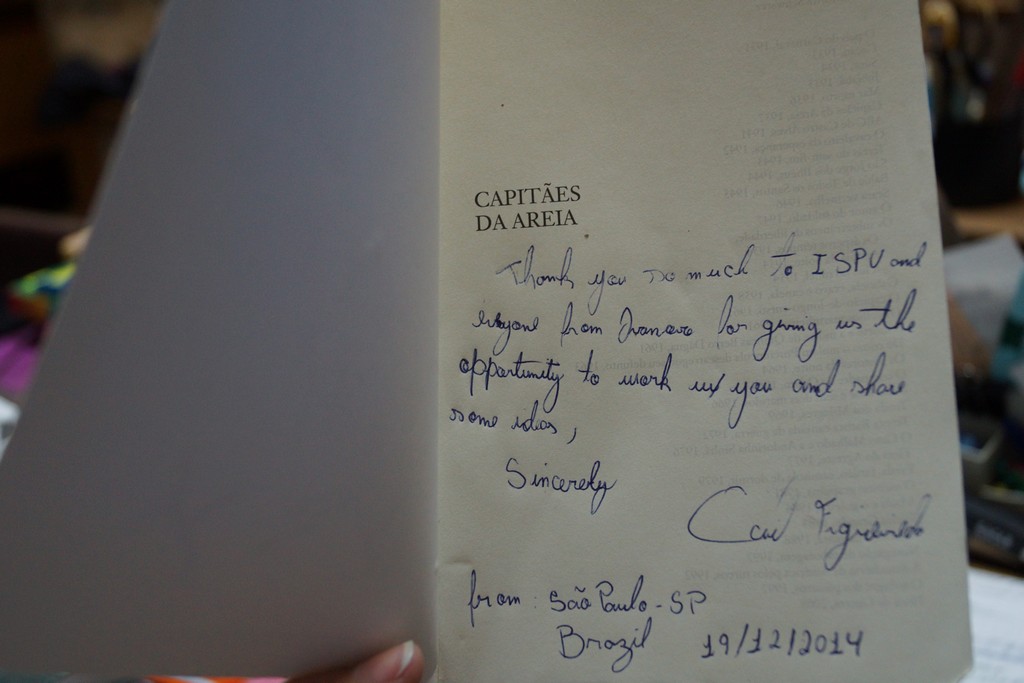 CAPITÃES
DA AREIA
Thank you so much to ISPU and
everyone from Ivanovo for giving us the
opportunity to work w/ you and share
some ideas,
Sincerely
Figueiredo
from: São Paulo - SP
Brazil 19/12/2014